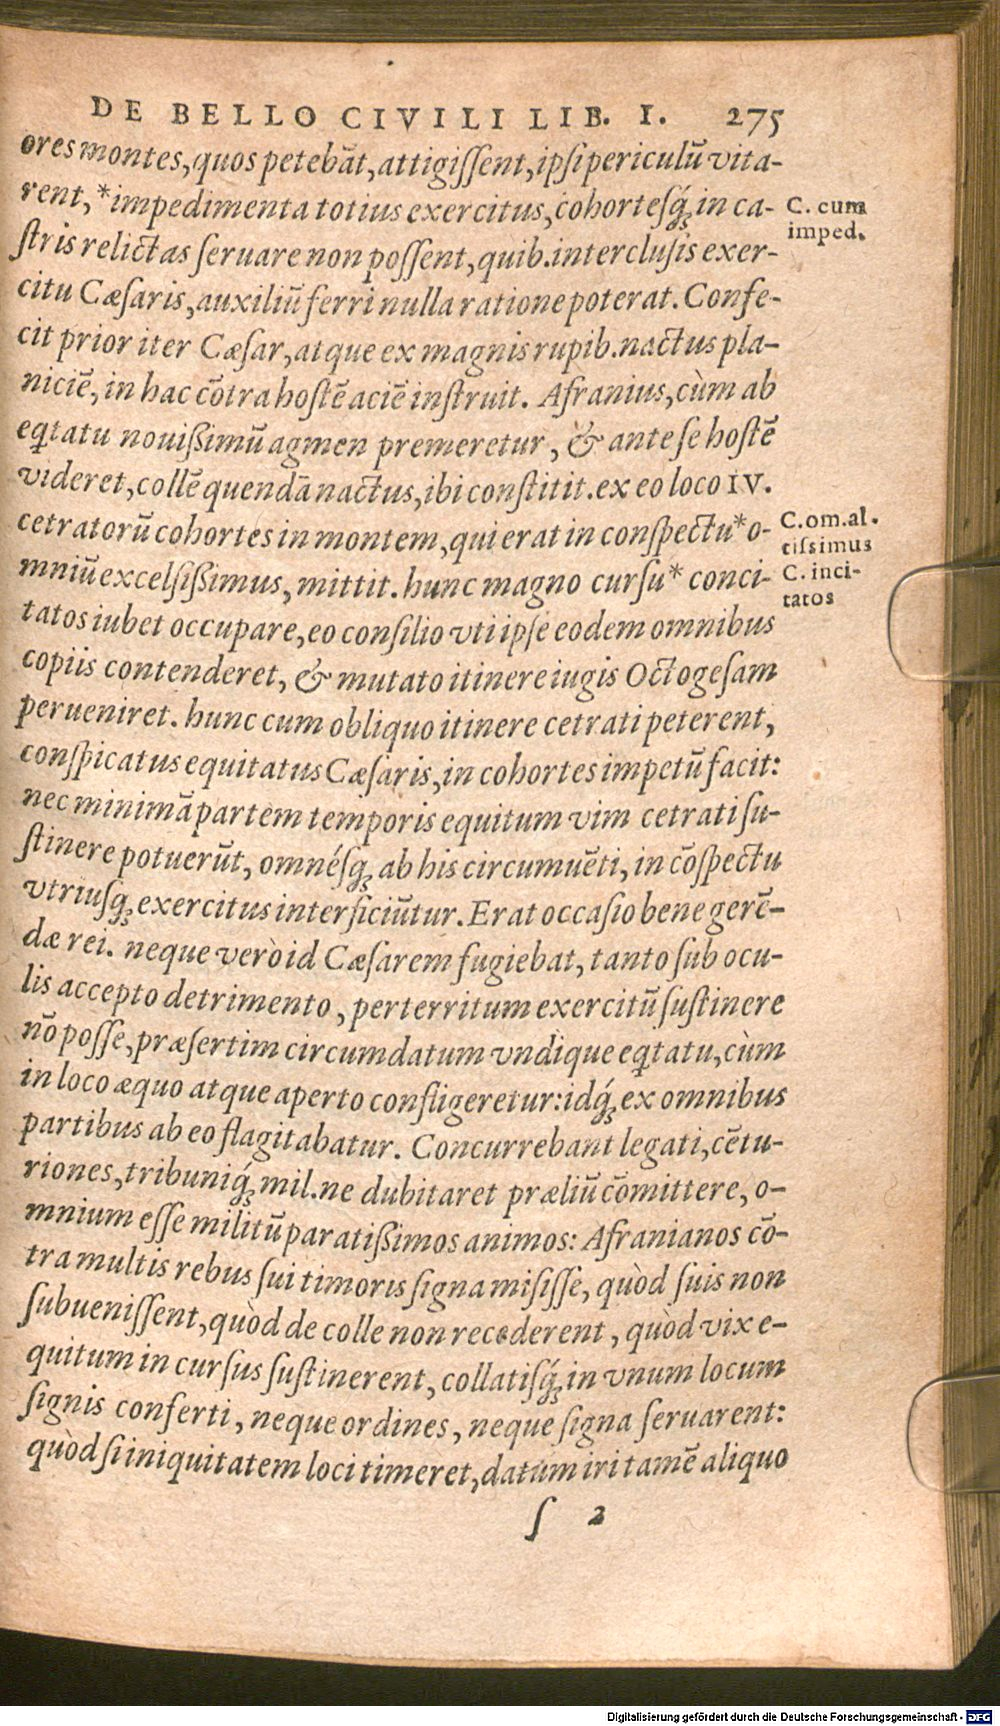 DE BELLO CIVILI LIB. I. 275
ores montes, quos petebāt, attigiſſent, ipſi periculū vita-
rent, *impedimenta totius exercitus, cohorteſq́ꝫ in ca-
ſtris relictas ſeruare non poſſent, quib. interclusis exer-
citu Cæſaris, auxiliū ferri nulla ratione poterat. Confe-
cit prior iter Cæſar, atque ex magnis rupib. nactus pla-
niciē, in hac cōtra hoſtē aciē inſtruit. Afranius, cùm ab
eq̃tatu nouißimū agmen premeretur, & ante ſe hoſtē
videret, collē quendā nactus, ibi conſtitit. ex eo loco IV.
cetratorū cohortes in montem, qui erat in conſpectu *o-
mniū excelſißimus, mittit. hunc magno curſu* conci-
tatos iubet occupare, eo conſilio vti ipſe eodem omnibus
copiis contenderet, & mutato itinere iugis Octogeſam
perueniret. hunc cum obliquo itinere cetrati peterent,
conſpicatus equitatus Cæſaris, in cohortes impetū facit:
nec minimā partem temporis equitum vim cetrati ſu-
ſtinere potuerūt, omnéſq́ꝫ ab his circumuēti, in cōſpectu
vtriuſq́ꝫ exercitus interficiūtur. Erat occaſio bene gerē-
dæ rei. neque verò id Cæſarem fugiebat, tanto ſub ocu-
lis accepto detrimento, perterritum exercitū ſuſtinere
nō poſſe, præſertim circumdatum vndique eq̃tatu, cùm
in loco æquo atque aperto confligeretur: idq́ꝫ ex omnibus
partibus ab eo flagitabatur. Concurrebant legati, cētu-
riones, tribuniq́ꝫ mil. ne dubitaret præliū cōmittere, o-
mnium eſſe militū paratißimos animos: Afranianos cō-
tra multis rebus ſui timoris ſigna miſiſſe, quòd ſuis non
ſubueniſſent, quòd de colle non recederent, quòd vix e-
quitum in curſus ſuſtinerent, collatiſq́ꝫ in vnum locum
ſignis conferti, neque ordines, neque ſigna ſeruarent:
quòd ſi iniquitatem loci timeret, datum iri tamē aliquo
ſ 2
C. cum
imped.
C. om. al.
tissimus
C. inci-
tatos
Digitalisierung gefördert durch die Deutsche Forschungsgemeinschaft - DFG